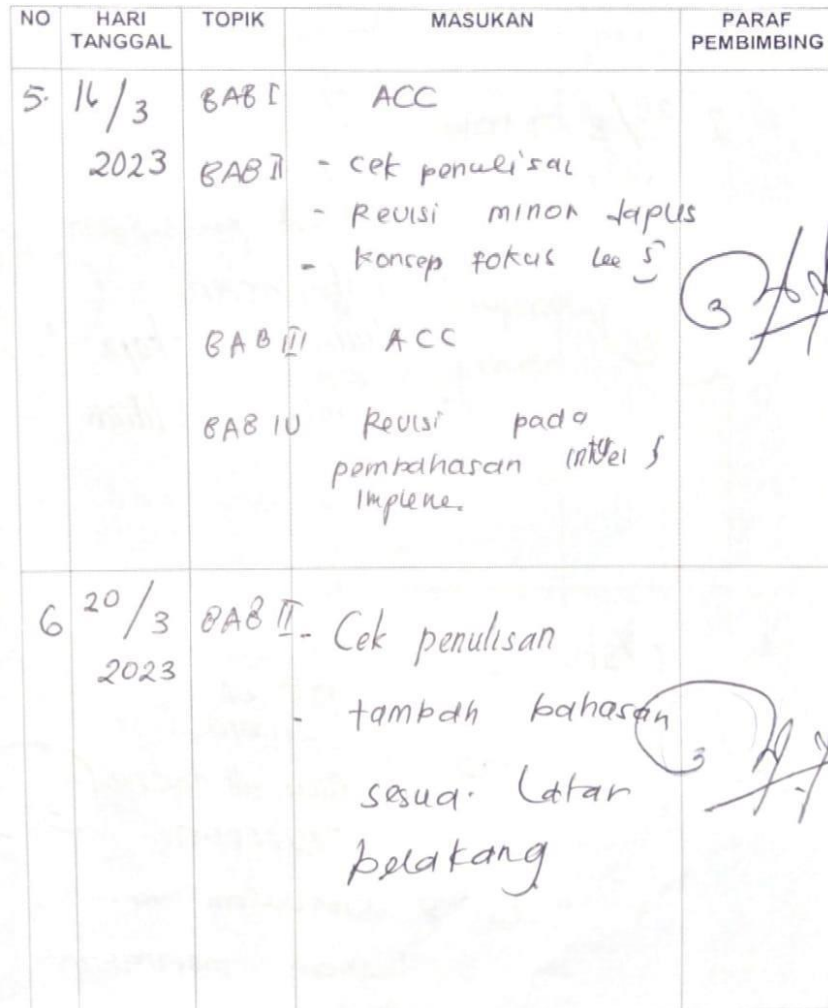 NO HARI TANGGAL TOPIK MASUKAN PARAF PEMBIMBING
5. 16/3 2023 BAB I ACC
BAB II - cek penulisan
- Revisi minor dapus
- konsep fokus ke
BAB III ACC
BAB IV Revisi pada
pembahasan
Impleme.
6 20/3 2023 BAB II - Cek penulisan
- tambah bahasan
sesuai Latar
belakang